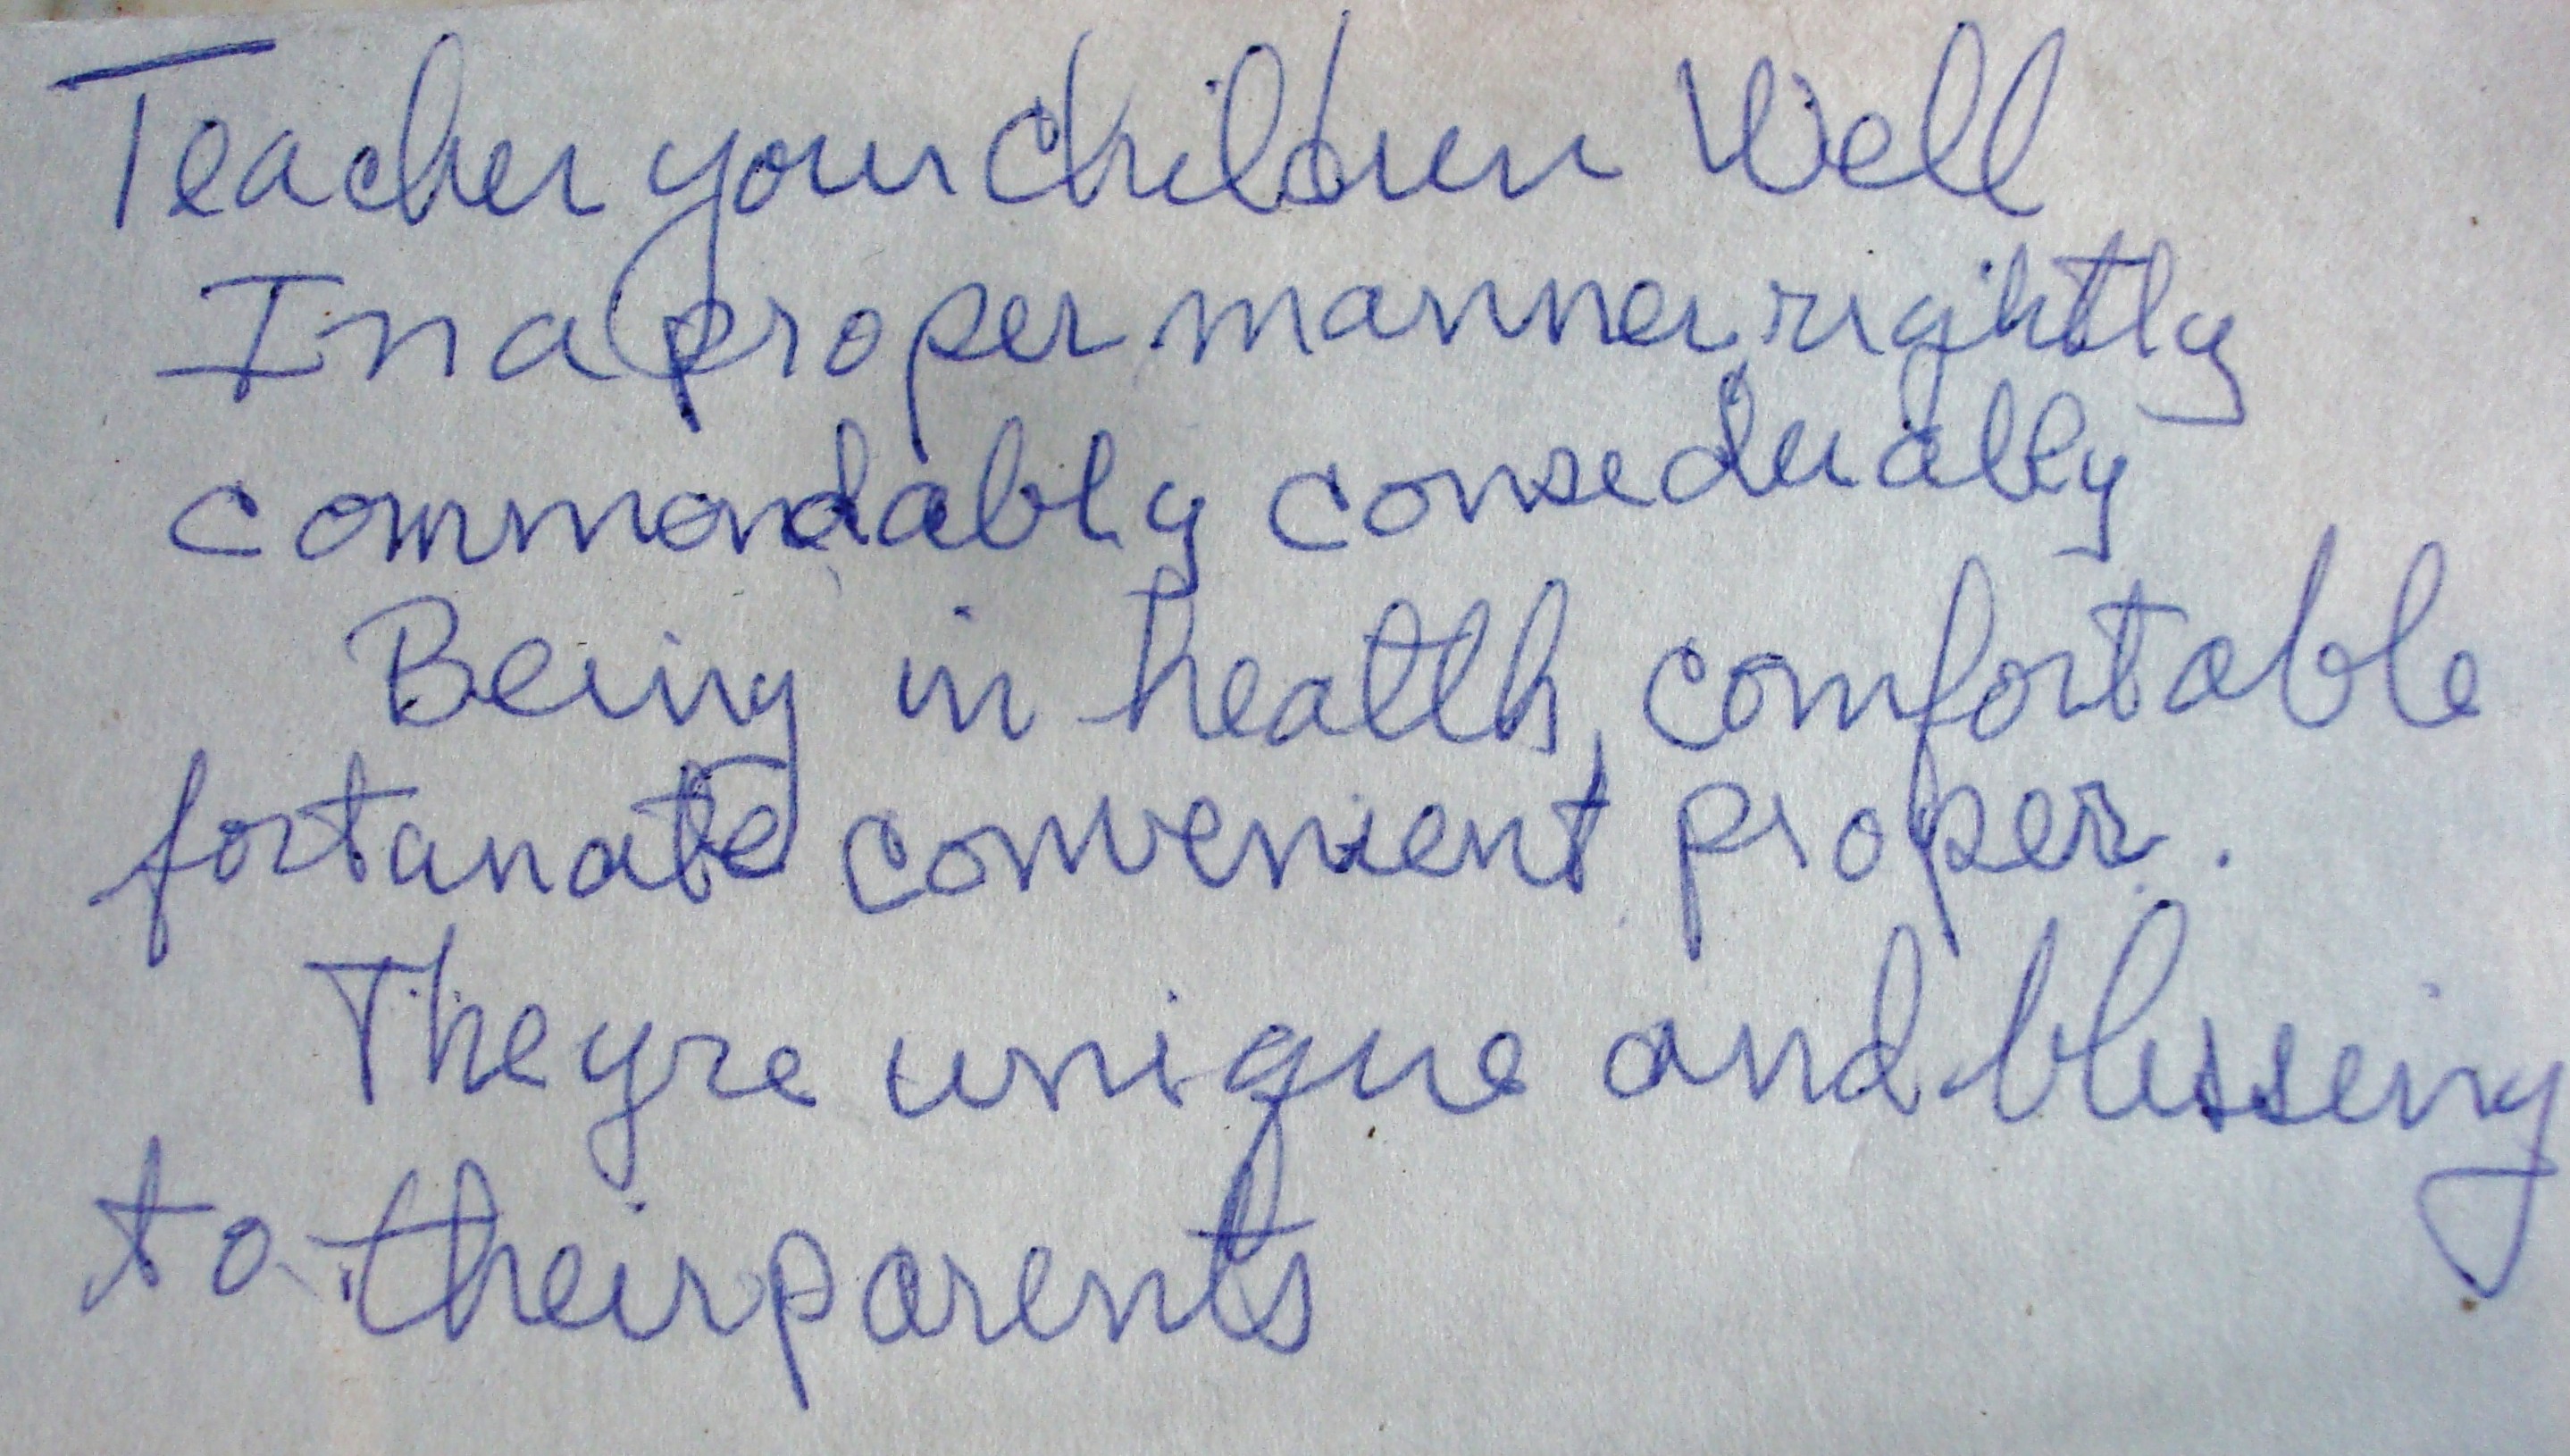 Teacher your children Well
In a proper manner, rightly
commondably consederably
Being in health, comfortable
fortunate convenient, proper.
Theyre unique and blesseing
to their parents